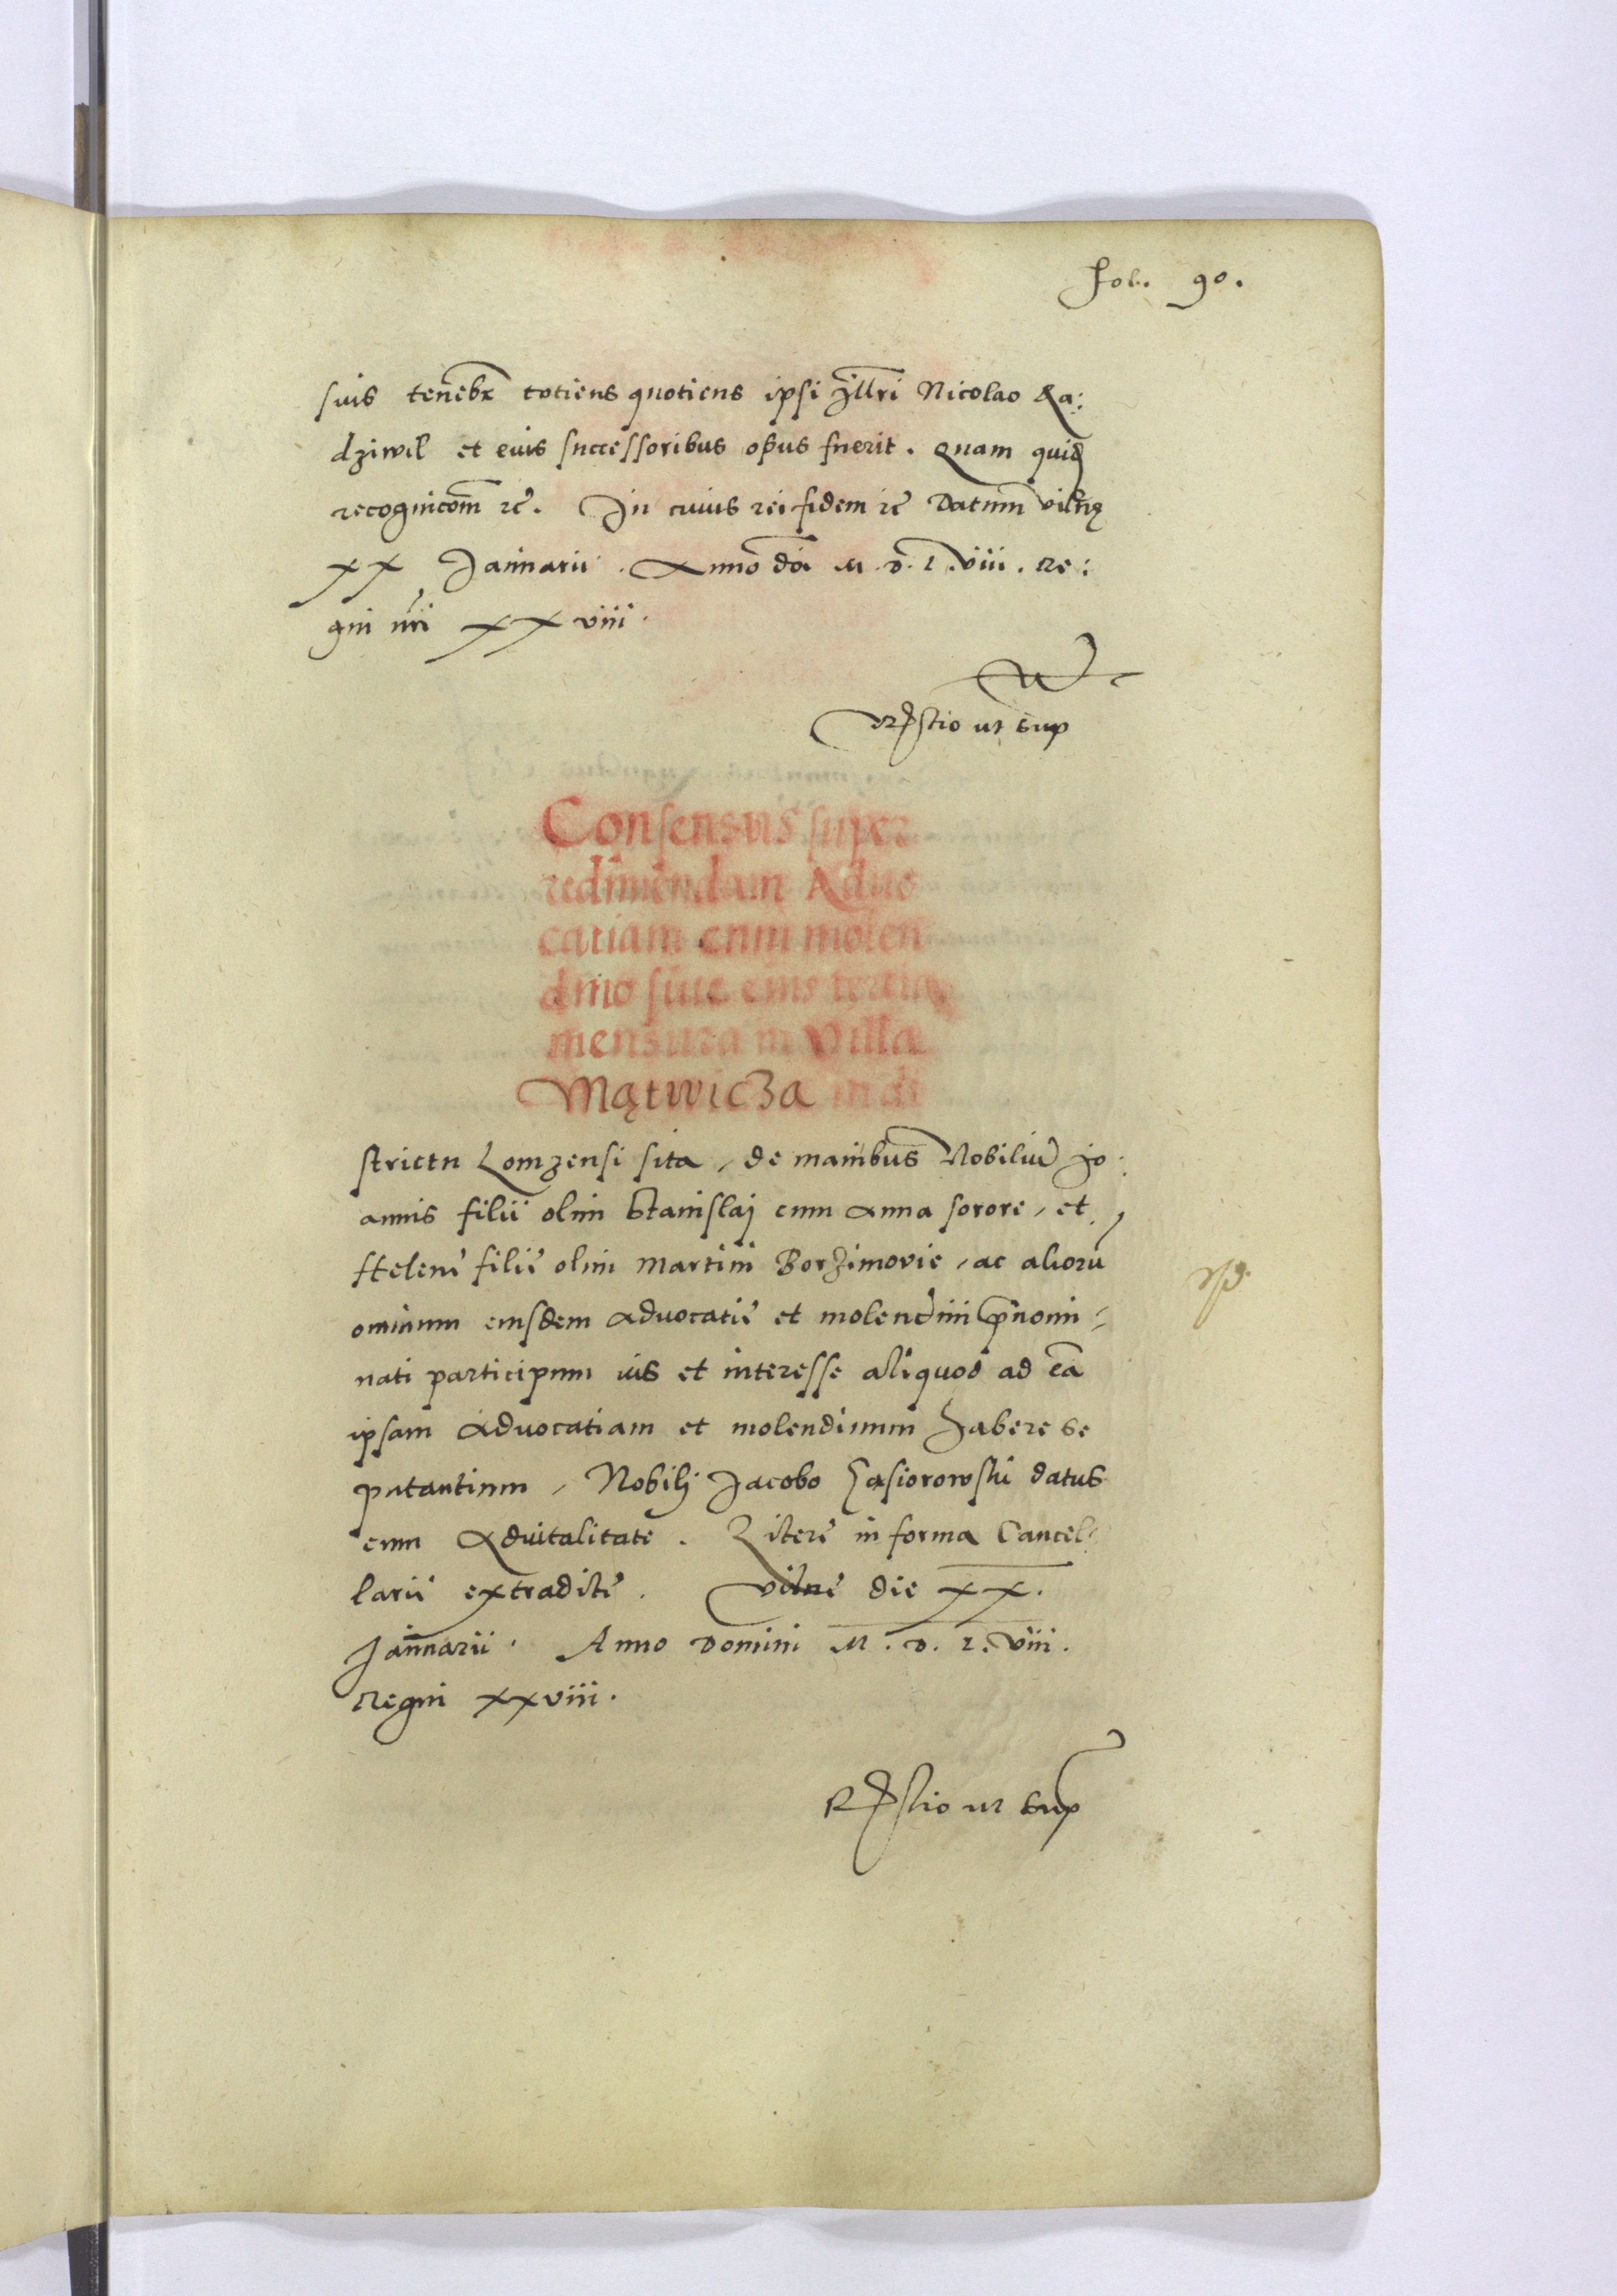 Fol. 90.
suis tenebr totiens quotiens ipsi Illri Nicolao Ra:
dziwil et eius successoribus opus fuerit. Quam quid
recognicom rc. In cuius rei fidem rc Datum Vilnę
XX Januarii. Anno dni M.D.L.viii. Re:
gni nri XXviii.
ut sup
Consensus super
redimendam Aduo
catiam cum molen
dino siue eius tertia
mensura in Villa
Mątwicza in di
strictu Lomzensi sita, de manibus Nobiliu Jo:
annis filii olim Stanislaj cum Anna sorore, et
Helenę filię olim Martini Borzimovie, ac alioru
omnium eiusdem advocatię et molendini pnomi,
nati participum ius et interesse aliquod ad ea
ipsam Advocatiam et molendinum habere se
putantium, Nobilj Jacobo Gąsiorowski datus
cum Advitalitate. Literę in forma Cancel,
larii extraditę. Vilnę die XX.
Januarii. Anno Domini M.D.L.viii.
Regni XXviii.
ut sup